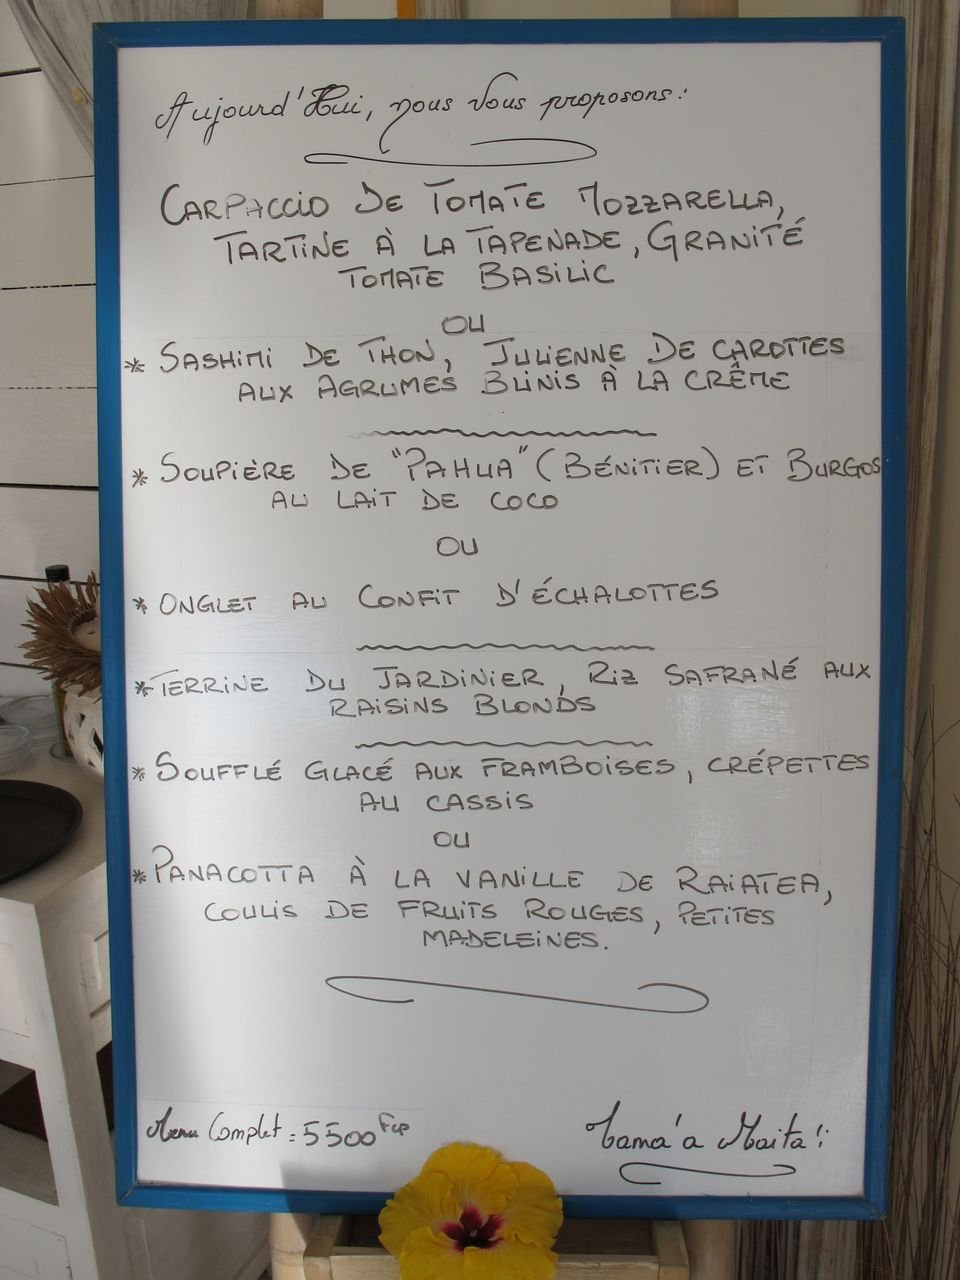 Aujourd'Hui, nous vous proposons :
CARPACCIO DE TOMATE MOZZARELLA,
TARTINE À LA TAPENADE, GRANITÉ
TOMATE BASILIC
OU
* SASHIMI DE THON, JULIENNE DE CAROTTES
AUX AGRUMES BLINIS À LA CRÊME
* SOUPIÈRE DE "PAHUA" (BÉNITIER) ET BURGOS
AU LAIT DE COCO
OU
* ONGLET AU CONFIT D'ÉCHALOTTES
* TERRINE DU JARDINIER, RIZ SAFRANÉ AUX
RAISINS BLONDS
* SOUFFLÉ GLACÉ AUX FRAMBOISES, CRÉPETTES
AU CASSIS
OU
* PANACOTTA À LA VANILLE DE RAIATEA,
COULIS DE FRUITS ROUGES, PETITES
MADELEINES.
Menu Complet = 5500 Fcp
Tama'a Maita'i